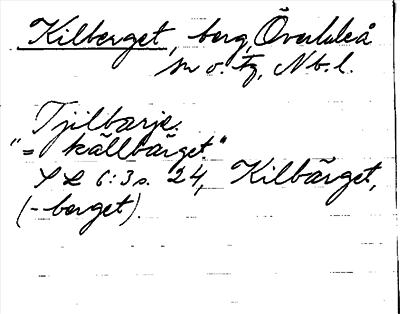 Kilberget, berg, Överluleå
sn o. tg, Nb. l.
Tjilbarje.
"= källbärget."
S L 6:3 s. 24, Kilbärget,
(-berget).